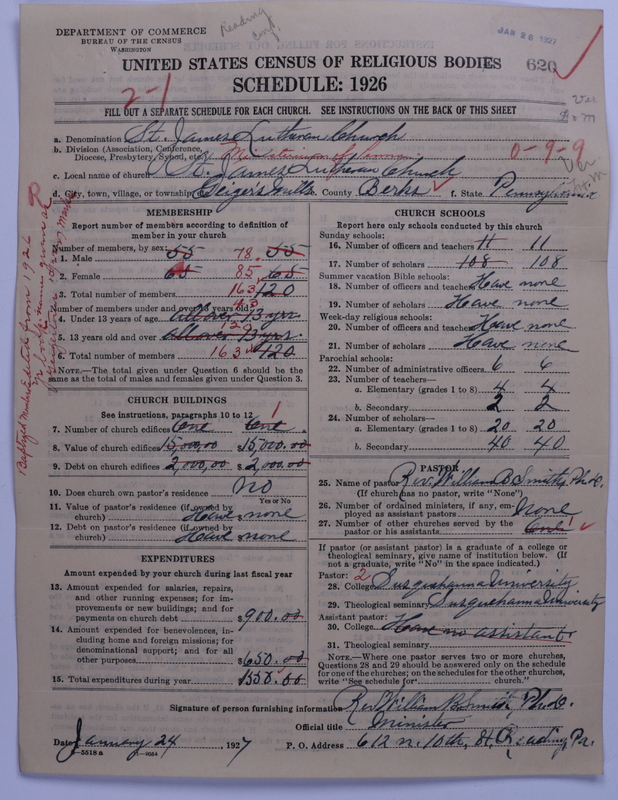 DEPARTMENT OF COMMERCE
BUREAU OF THE CENSUS
WASHINGTON
Reading
JAN 26 1927
UNITED STATES CENSUS OF RELIGIOUS BODIES
626
SCHEDULE: 1926
2-1
FILL OUT A SEPARATE SCHEDULE FOR EACH CHURCH. SEE INSTRUCTIONS ON THE BACK OF THIS SHEET
a. Denomination St. James Lutheran Church
b. Division (Association, Conference, Diocese, Presbytery, Synod, etc.) Ministerium of Penna
0-9-9
c. Local name of church St. James Lutheran Church
d. City, town, village, or township Geigers Mills e. County Berks f. State Pennsylvania
MEMBERSHIP
Report number of members according to definition of member in your church
Number of members, by sex:
1. Male 55 78 55
2. Female 65 85 65
3. Total number of members 163 120
Number of members under and over 13 years old:
4. Under 13 years of age all over 13 yrs 43
5. 13 years old and over all over 13 yrs. 120
6. Total number of members 163 120
NOTE.—The total given under Question 6 should be the same as the total of males and females given under Question 3.
CHURCH BUILDINGS
See instructions, paragraphs 10 to 12
7. Number of church edifices One One 1
8. Value of church edifices 15,000.00 $15,000.00
9. Debt on church edifices 2,000.00 $2,000.00
10. Does church own pastor's residence No
Yes or No
11. Value of pastor's residence (if owned by church) Have none
12. Debt on pastor's residence (if owned by church) Have none
EXPENDITURES
Amount expended by your church during last fiscal year
13. Amount expended for salaries, repairs, and other running expenses; for improvements or new buildings; and for payments on church debt $900.00
14. Amount expended for benevolences, including home and foreign missions; for denominational support; and for all other purposes $650.00
15. Total expenditures during year $1550.00
CHURCH SCHOOLS
Report here only schools conducted by this church
Sunday schools:
16. Number of officers and teachers 11 11
17. Number of scholars 108 108
Summer vacation Bible schools:
18. Number of officers and teachers Have none
19. Number of scholars Have none
Week-day religious schools:
20. Number of officers and teachers Have none
21. Number of scholars Have none
Parochial schools:
22. Number of administrative officers 6 6
23. Number of teachers—
a. Elementary (grades 1 to 8) 4 4
b. Secondary 2 2
24. Number of scholars—
a. Elementary (grades 1 to 8) 20 20
b. Secondary 40 40
PASTOR
25. Name of pastor Rev. William B. Smith, Ph.D.
(If church has no pastor, write "None")
26. Number of ordained ministers, if any, employed as assistant pastors None
27. Number of other churches served by the pastor or his assistants One 1
If pastor (or assistant pastor) is a graduate of a college or theological seminary, give name of institution below. (If not a graduate, write "No" in the space indicated.)
Pastor: 2
28. College Susquehanna University
29. Theological seminary Susquehanna University
Assistant pastor:
30. College Have no assistant.
31. Theological seminary
NOTE.—Where one pastor serves two or more churches, Questions 28 and 29 should be answered only on the schedule for one of the churches; on the schedules for the other churches, write "See schedule for church."
Signature of person furnishing information Rev. William B. Smith, Ph.D.
Official title Minister
Date January 24, 1927
P. O. Address 612 n. 10th, St. Reading, Pa.